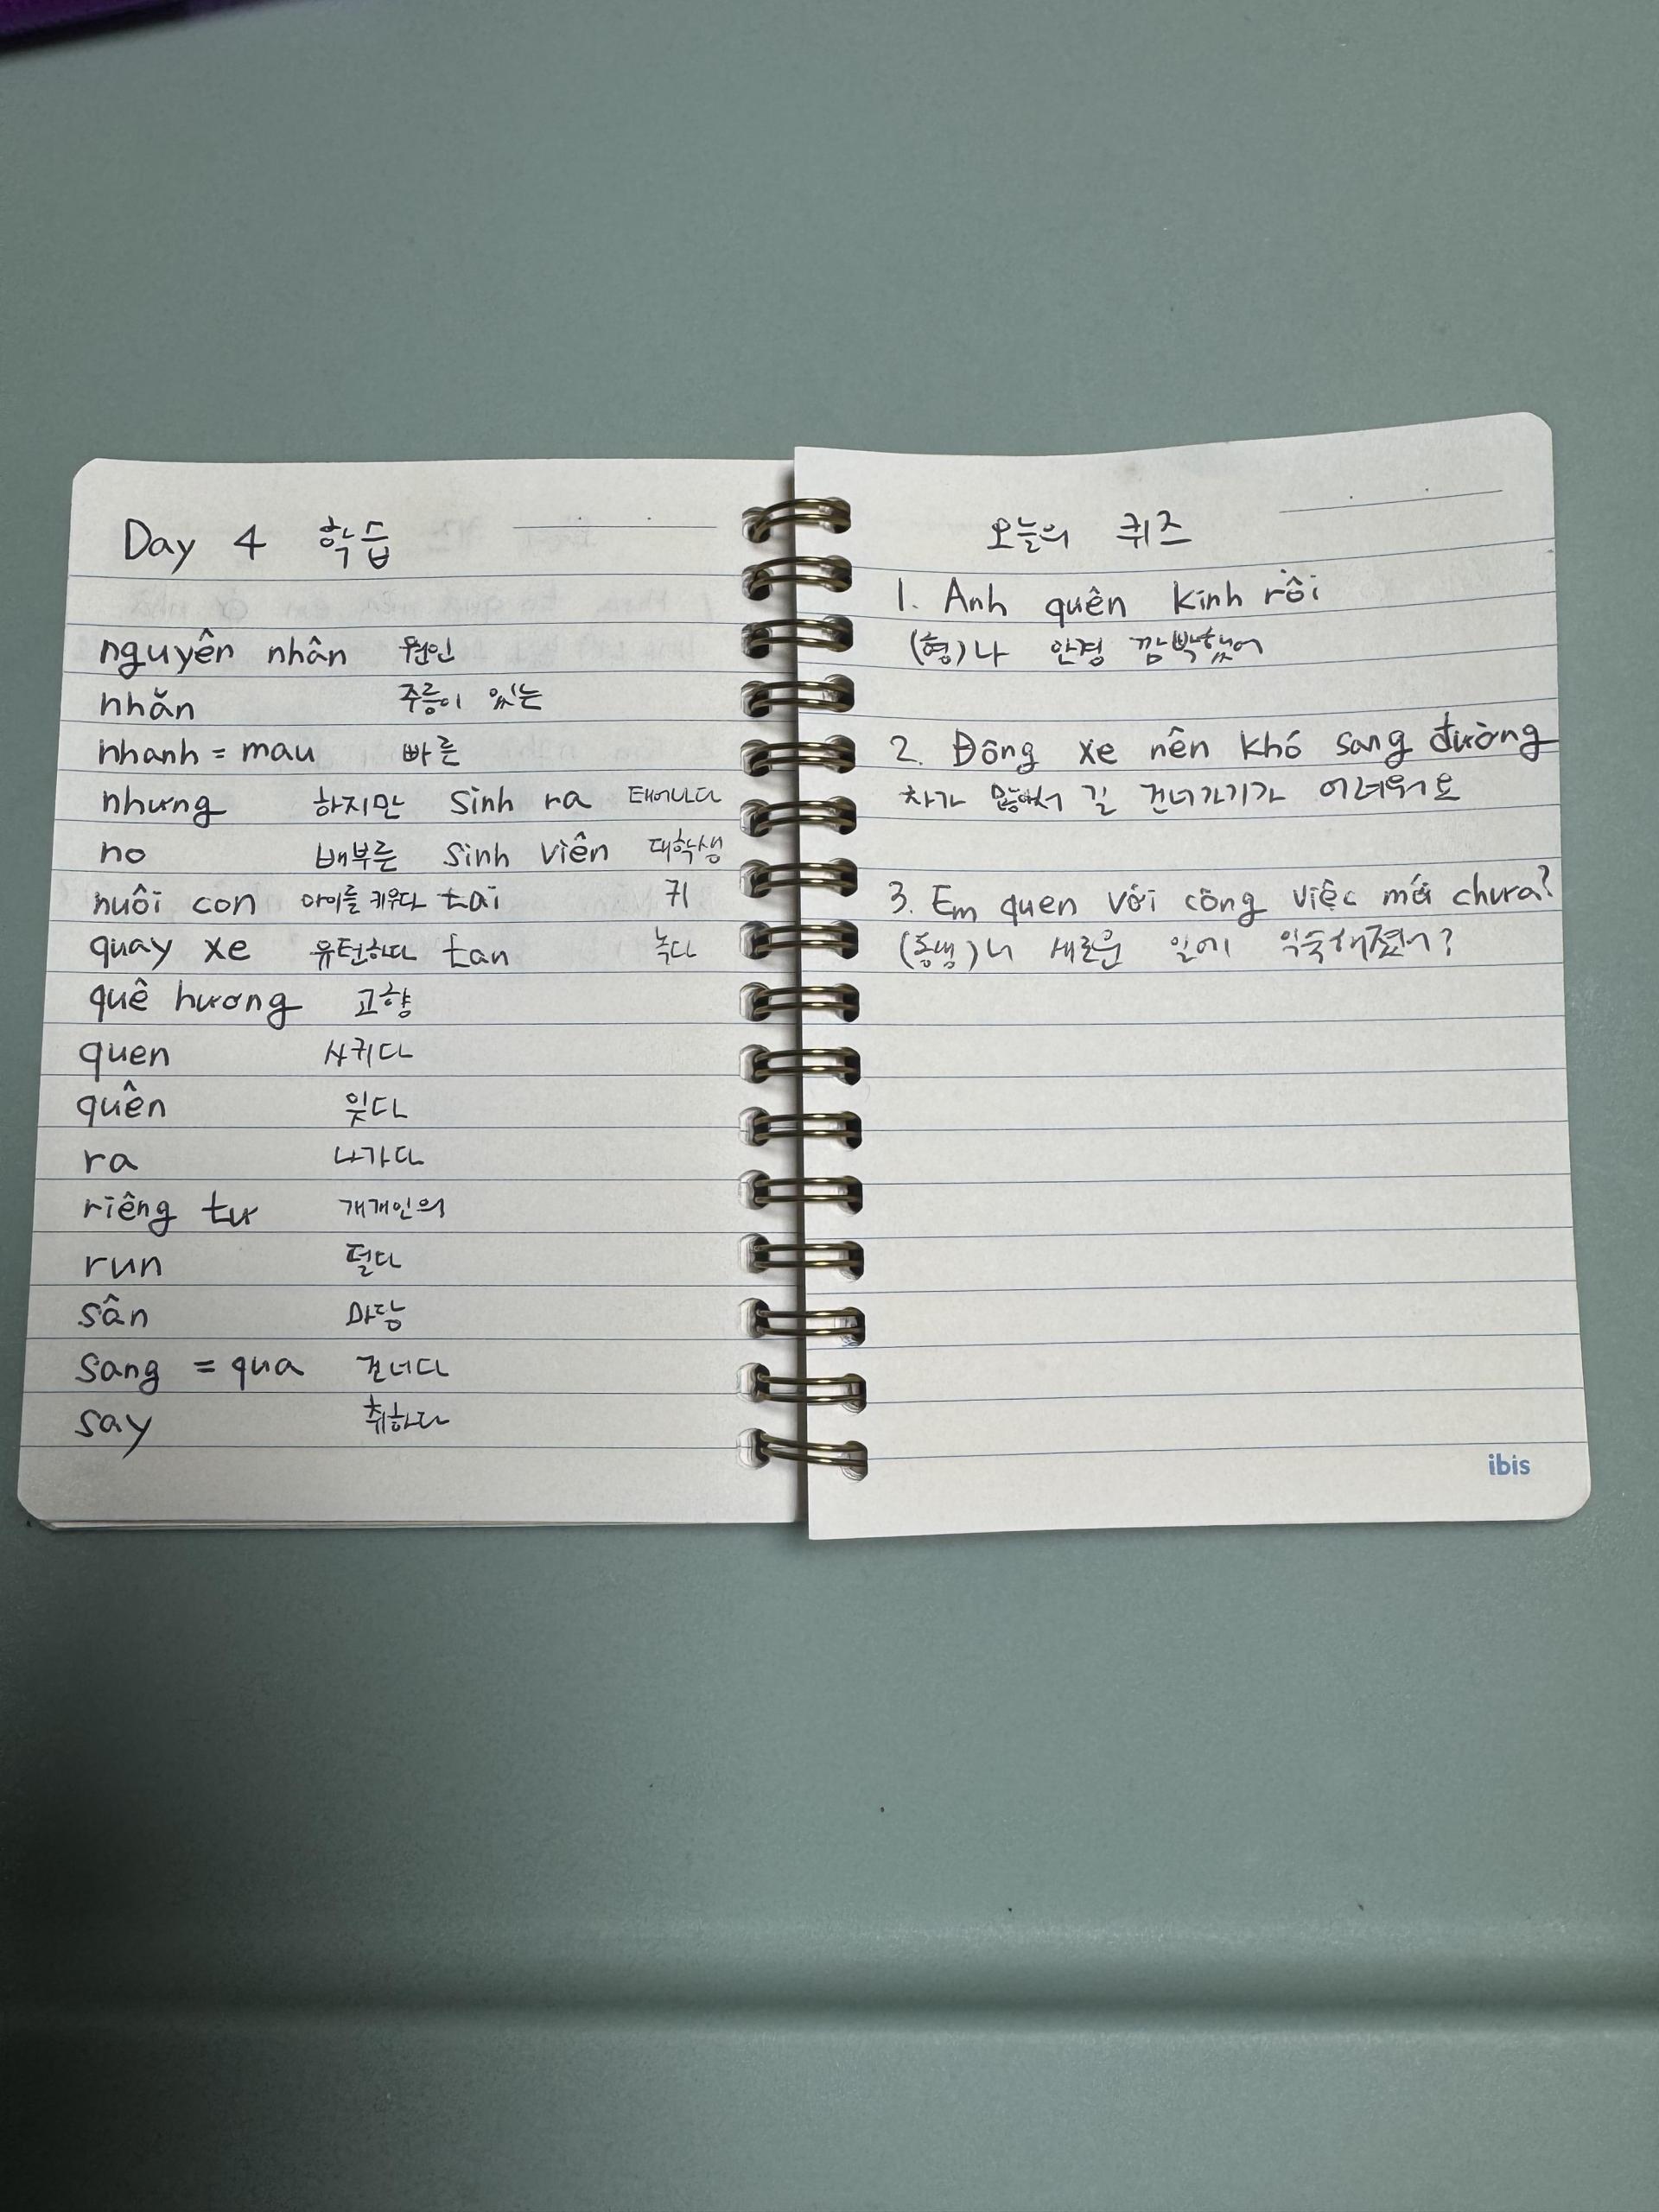 Day 4 학습
nguyên nhân 원인
nhăn 주름이 있는
nhanh = mau 빠른
nhưng 하지만 sinh ra 태어나다
no 배부른 sinh viên 대학생
nuôi con 아이를 키우다 tai 귀
quay xe 유턴하다 tan 녹다
quê hương 고향
quen 사귀다
quên 잊다
ra 나가다
riêng tư 개개인의
run 떨다
sân 마당
sang = qua 건너다
say 취하다
오늘의 퀴즈
1. Anh quên kính rồi
(형)나 안경 깜박했어
2. Đông xe nên khó sang đường
차가 많아서 길 건너가기가 어려워요
3. Em quen với công việc mới chưa?
(동생)너 새로운 일에 익숙해졌어?
ibis